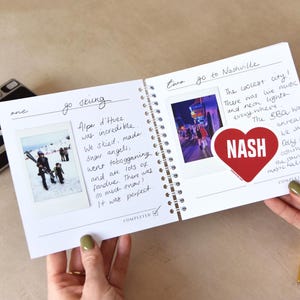 one go skiing
Alpe d'Huez
was incredible.
We skied, made
snow angels,
went tobogganing
and ate lots of
fondue. There was
so much snow!
It was perfect
COMPLETED
go to Nashville
The coolest city!
There was live music
and neon lights
everywhere.
The
NASH